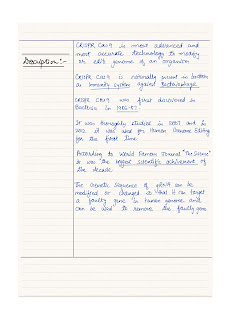 CRISPR CAS9 is most advanced and
Description:- most accurate technology to modify
or edit genome of an organism
CRISPR CAS9 is normally present in bacteria
as immunity system against Bacteriophage.
CRISPR CAS9 was first discovered in
Bacteria in 1986-87.
It was thoroughly studied in 2007 and in
2012 it was used for Human Genome Editing
for the first time
According to World Famous Journal "The Science"
it was the biggest scientific achievement of
the decade.
The Genetic Sequence of gRNA can be
modified or changed so that it can target
a faulty gene in human genome and
can be used to remove the faulty gene